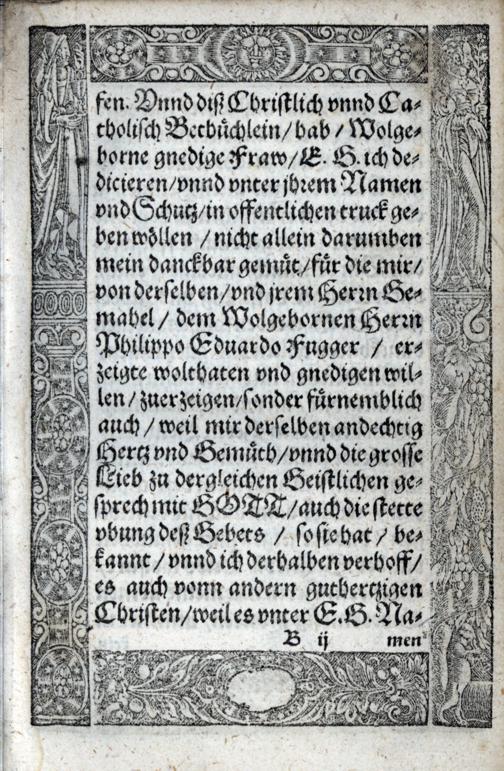 fen. Vnnd diß Christlich vnnd Ca-
tholisch Betbüchlein/hab/Wolge-
borne gnedige Fraw/E. G. ich de-
dicieren/vnnd vnter jhrem Namen
vnd Schutz/in offentlichen truck ge-
ben wöllen /nicht allein darumben
mein danckbar gemüt/für die mir/
von derselben/vnd jrem Herrn Ge-
mahel/ dem Wolgebornen Herrn
Philippo Eduardo Fugger / er-
zeigte wolthaten vnd gnedigen wil-
len/zuerzeigen/sonder fürnemblich
auch/weil mir derselben andechtig
Hertz vnd Gemüth/vnnd die grosse
Lieb zu dergleichen Geistlichen ge-
sprech mit GOTT/auch die stette
vbung deß Gebets / so sie hat / be-
kannt/vnnd ich derhalben verhoff/
es auch vonn andern guthertzigen
Christen/weil es vnter E.G. Na-
B ij men